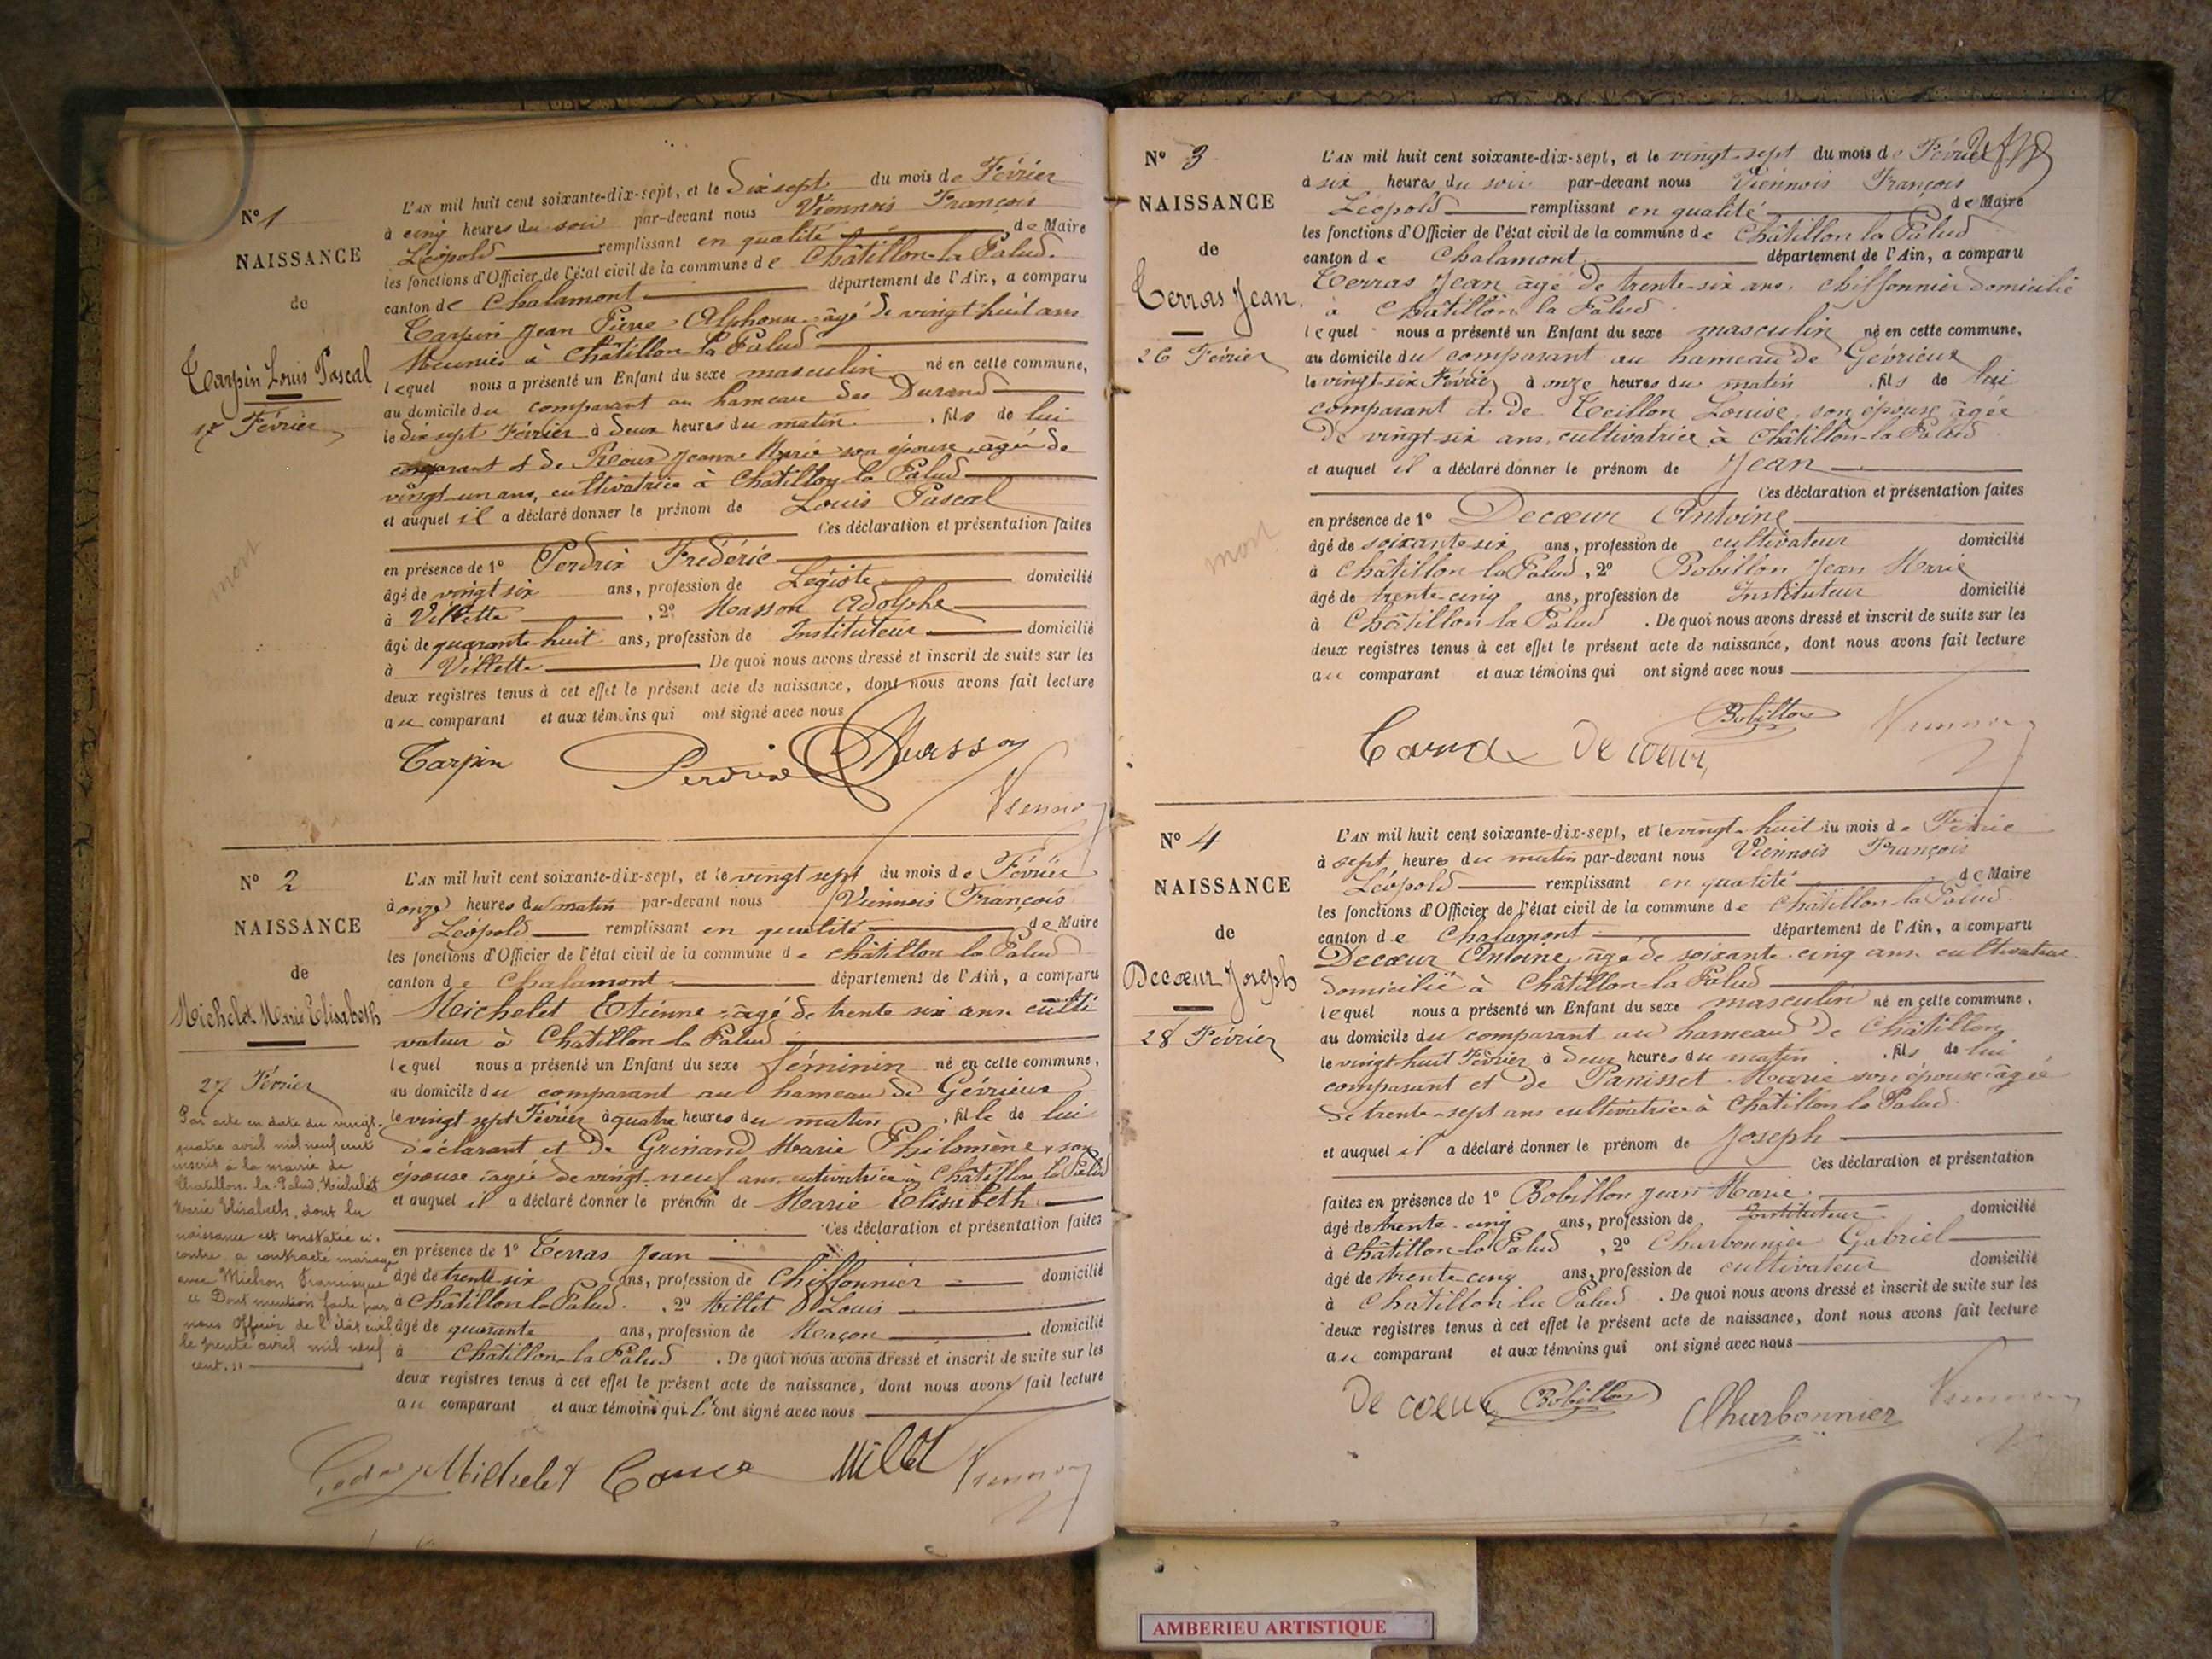 N° 1
NAISSANCE
de
Tarpin Louis Pascal
17 Février
mort
L'AN mil huit cent soixante-dix-sept, et le Dix sept du mois de Février
à cinq heures du soir par-devant nous Viennois François
Léopold remplissant en qualité de Maire
les fonctions d'Officier de l'état civil de la commune de Châtillon-la-Palud.
canton de Chalamont département de l'Ain, a comparu
Tarpin Jean Pierre Alphonse âgé de vingt huit ans
Meunier à Châtillon la Palud
lequel nous a présenté un Enfant du sexe masculin né en cette commune,
au domicile du comparant au hameau des Durand
le dix sept Février à deux heures du matin , fils de lui
comparant et de Jeanne Marie son épouse, âgée de
vingt-un ans, cultivatrice à Châtillon la Palud
et auquel il a déclaré donner le prénom de Louis Pascal
Ces déclaration et présentation faites
en présence de 1° Perdrix Frédéric
âgé de vingt six ans, profession de Légiste domicilié
à Villette , 2° Masson Adolphe
âgé de quarante huit ans, profession de Instituteur domicilié
à Villette De quoi nous avons dressé et inscrit de suite sur les
deux registres tenus à cet effet le présent acte de naissance, dont nous avons fait lecture
au comparant et aux témoins qui ont signé avec nous
Tarpin Perdrix Masson
Viennois
N° 2
NAISSANCE
de
Michelet Marie Elisabeth
27 Février
Par acte en date du vingt-
quatre avril mil neuf cent
inscrit à la mairie de
Chatillon-la-Palud, Michelet
Marie Elisabeth, dont la
naissance est constatée ci-
contre, a contracté mariage
avec Michon Francisque
Dont mention faite par
nous Officier de l'état civil
le trente avril mil neuf
cent.
L'AN mil huit cent soixante-dix-sept, et le vingt sept du mois de Février
à onze heures du matin par-devant nous Viennois François
Léopold remplissant en qualité de Maire
les fonctions d'Officier de l'état civil de la commune de châtillon la Palud
canton de Chalamont département de l'Ain, a comparu
Michelet Etienne âgé de trente six ans culti
vateur à Châtillon la Palud
lequel nous a présenté un Enfant du sexe féminin né en cette commune,
au domicile du comparant au hameau de Gévrieux
le vingt sept Février à quatre heures du matin , fille de lui
déclarant et de Marie Philomène, son
épouse âgée de vingt-neuf ans, cultivatrice à Châtillon la Palud
et auquel il a déclaré donner le prénom de Marie Elisabeth
Ces déclaration et présentation faites
en présence de 1° Terras Jean
âgé de trente six ans, profession de Chiffonnier domicilié
à Châtillon la Palud. , 2° Millet Louis
âgé de quarante ans, profession de Maçon domicilié
à Châtillon-la Palud . De quoi nous avons dressé et inscrit de suite sur les
deux registres tenus à cet effet le présent acte de naissance, dont nous avons fait lecture
au comparant et aux témoins qui l'ont signé avec nous
Michelet Milet Viennois
N° 3
NAISSANCE
de
Terras Jean.
26 Février
mort
L'AN mil huit cent soixante-dix-sept, et le vingt-sept du mois de Février
à six heures du soir par-devant nous Viennois François
Léopold remplissant en qualité de Maire
les fonctions d'Officier de l'état civil de la commune de Châtillon la Palud
canton de Chalamont département de l'Ain, a comparu
Terras Jean âgé de trente-six ans, chiffonnier domicilié
à Châtillon la Palud
lequel nous a présenté un Enfant du sexe masculin né en cette commune,
au domicile du comparant au hameau de Gévrieux
le vingt-six Février à onze heures du matin , fils de lui
comparant et de Teillon Louise, son épouse âgée
de vingt-six ans, cultivatrice à Châtillon-la Palud
et auquel il a déclaré donner le prénom de Jean
Ces déclaration et présentation faites
en présence de 1° Decœur Antoine
âgé de soixante six ans, profession de cultivateur domicilié
à Châtillon la Palud, 2° Bobillon Jean Marie
âgé de trente-cinq ans, profession de Instituteur domicilié
à Châtillon la Palud . De quoi nous avons dressé et inscrit de suite sur les
deux registres tenus à cet effet le présent acte de naissance, dont nous avons fait lecture
au comparant et aux témoins qui ont signé avec nous
Bobillon Viennois
De coeur
N° 4
NAISSANCE
de
Decœur Joseph
28 Février
L'AN mil huit cent soixante-dix-sept, et le vingt-huit du mois de Février
à sept heures du matin par-devant nous Viennois François
Léopold remplissant en qualité de Maire
les fonctions d'Officier de l'état civil de la commune de Châtillon-la Palud.
canton de Chalamont département de l'Ain, a comparu
Decœur Antoine, âgé de soixante-cinq ans cultivateur
domicilié à Châtillon-la Palud
lequel nous a présenté un Enfant du sexe masculin né en cette commune,
au domicile du comparant au hameau de Châtillon
le vingt-huit Février à deux heures du matin , fils de lui
comparant et de Panisset Marie son épouse âgée
de trente-sept ans cultivatrice à Châtillon la Palud.
et auquel il a déclaré donner le prénom de Joseph
Ces déclaration et présentation
faites en présence de 1° Bobillon Jean Marie
âgé de trente-cinq ans, profession de Instituteur domicilié
à Châtillon-la Palud , 2° Charbonnier Gabriel
âgé de trente-cinq ans, profession de cultivateur domicilié
à Châtillon la Palud . De quoi nous avons dressé et inscrit de suite sur les
deux registres tenus à cet effet le présent acte de naissance, dont nous avons fait lecture
au comparant et aux témoins qui ont signé avec nous
De coeur Bobillon Charbonnier Viennois
AMBERIEU ARTISTIQUE